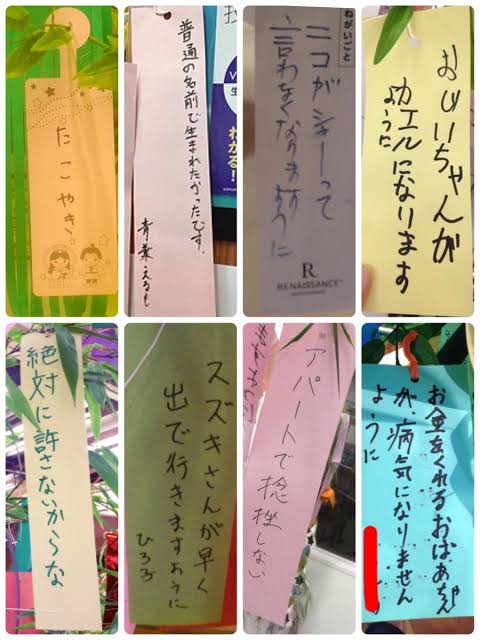 たこやき
普通の名前で生まれたかったです。
青葉える
ねがいごと
ニコがシャーって
言わなくなりますように
R
RENAISSANCE
おじいちゃんが
カエルになります
ように
絶対に許さないからな
スズキさんが早く
出て行きますように
ひろ子
アパートで捻挫しない
お金をくれるおばあちゃん
が、病気になりません
ように